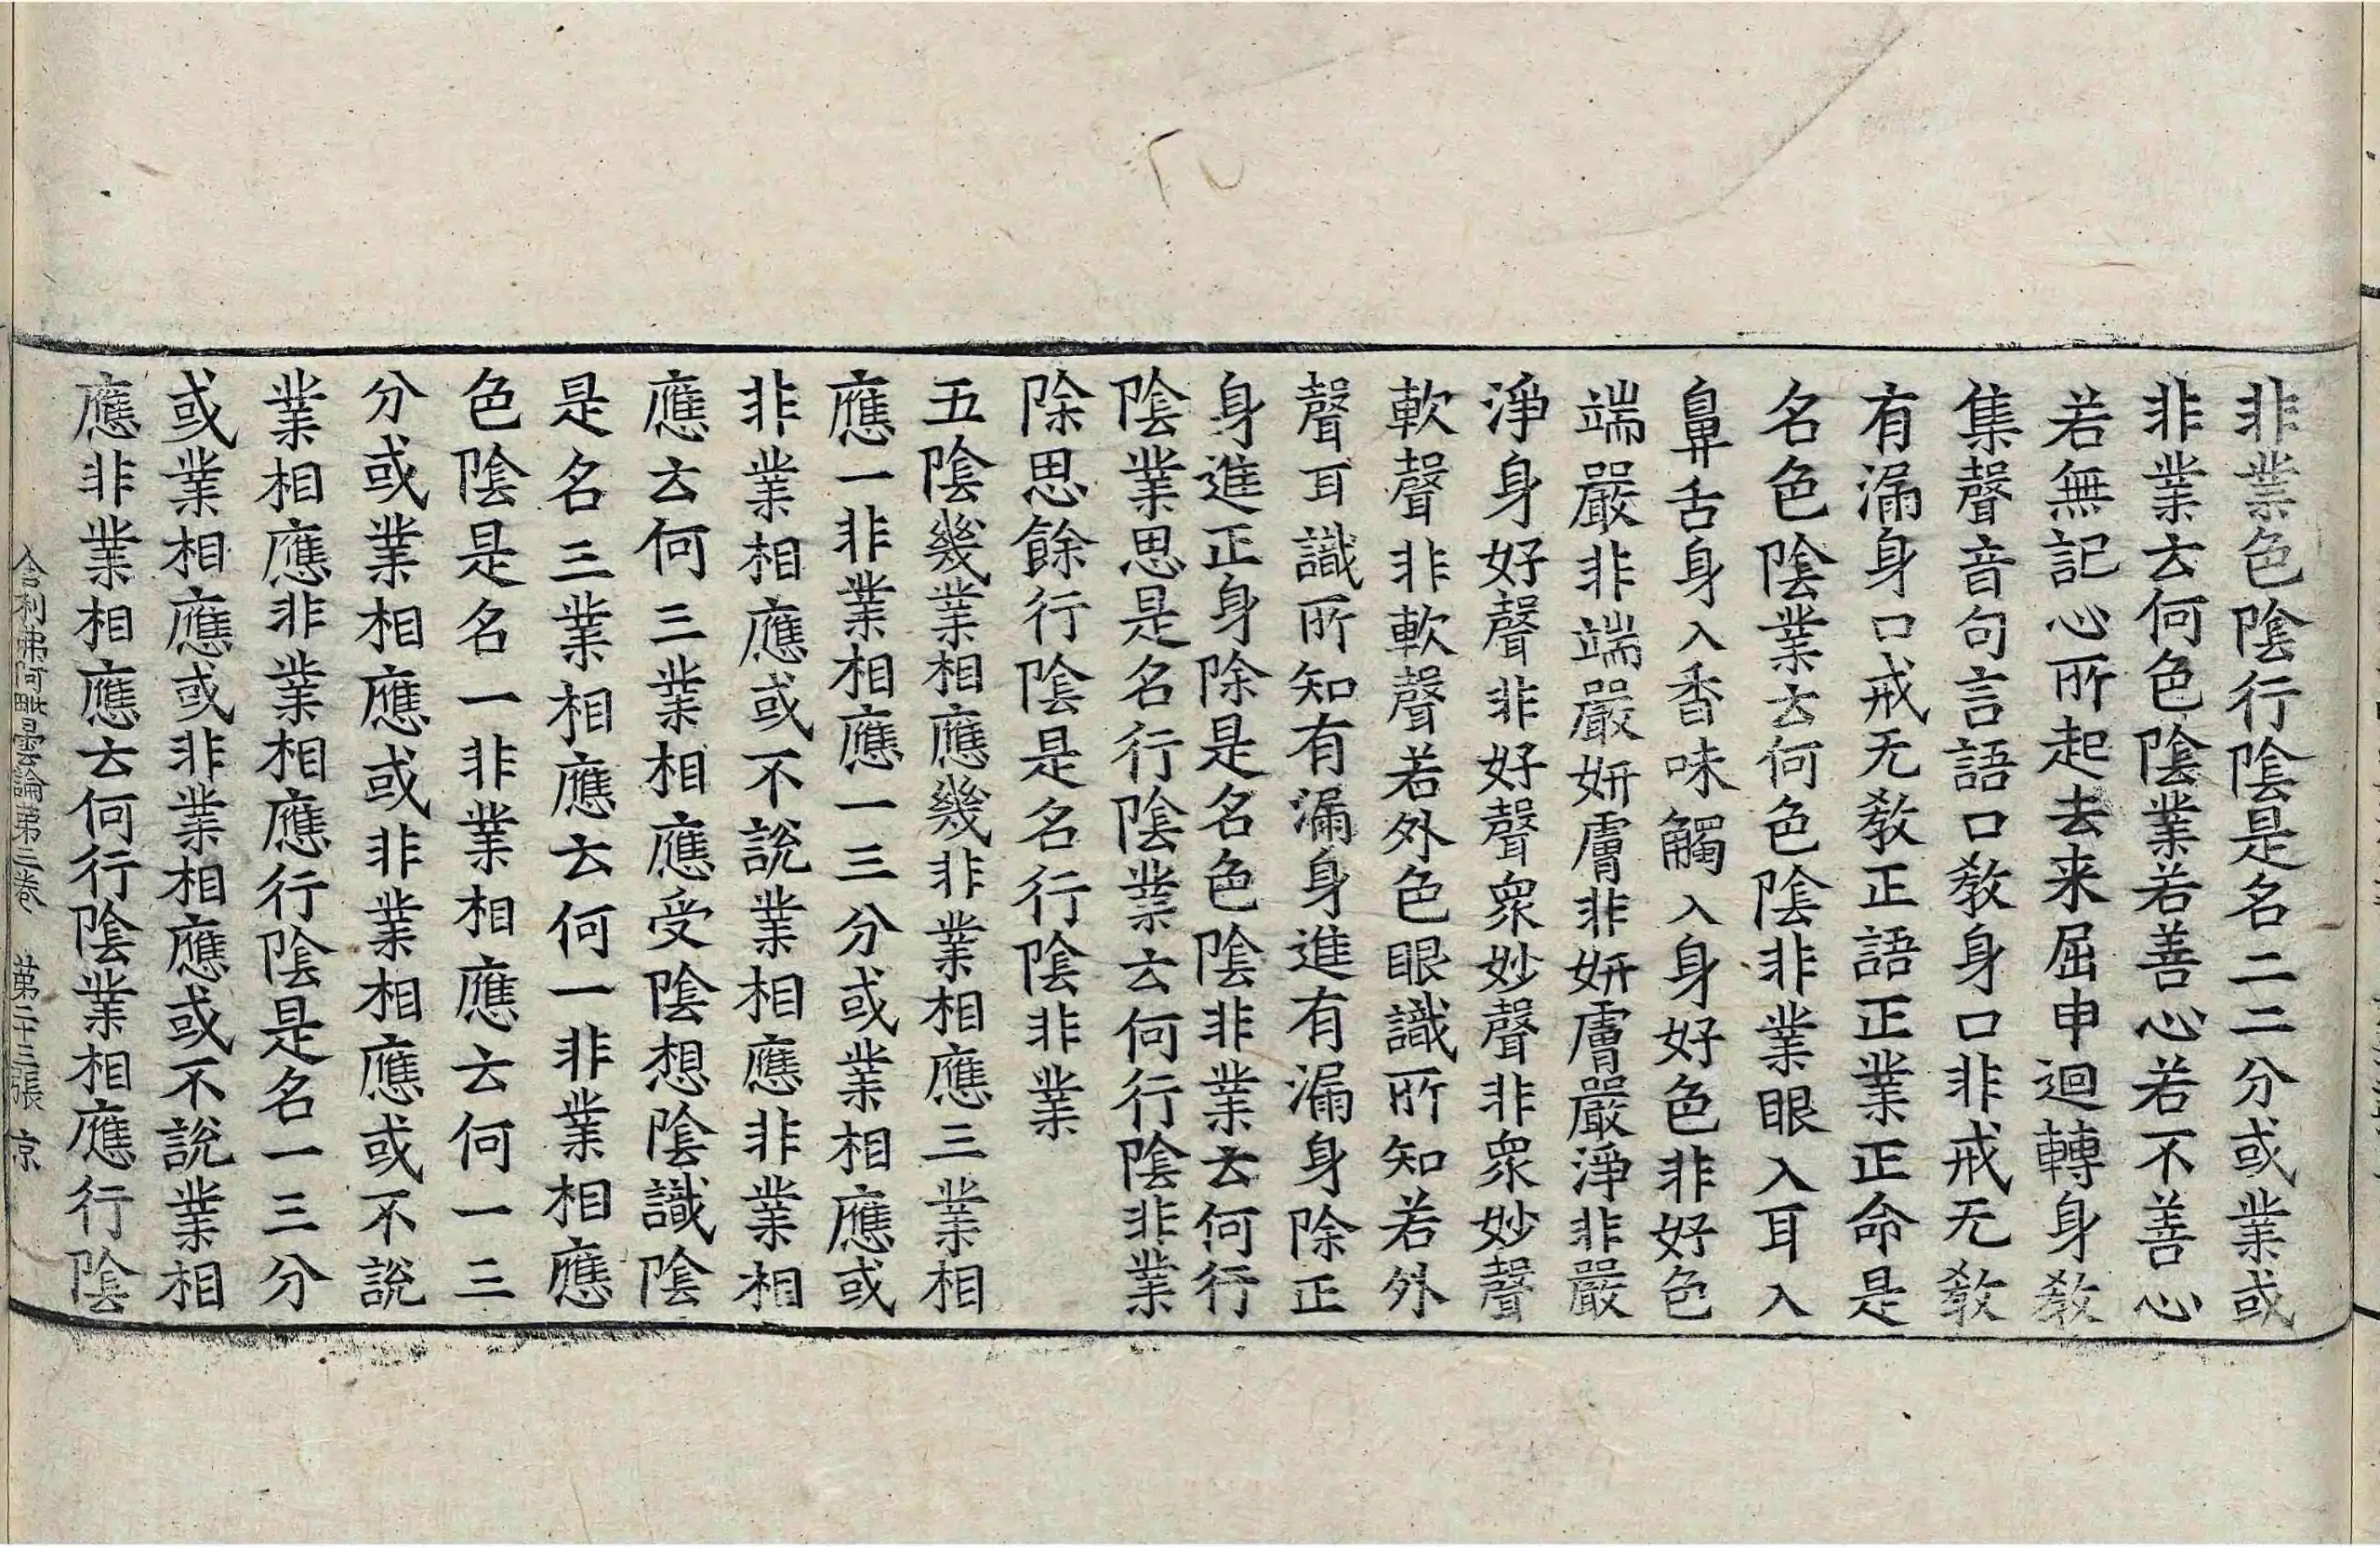 非業色陰行陰是名二二分或業或
非業云何色陰業若善心若不善心
若無記心所起去来屈申迴轉身教
集聲音句言語口教身口非戒无教
有漏身口戒无教正語正業正命是
名色陰業云何色陰非業眼入耳入
鼻舌身入香味觸入身好色非好色
端嚴非端嚴妍膚非妍膚嚴淨非嚴
淨身好聲非好聲衆妙聲非衆妙聲
軟聲非軟聲若外色眼識所知若外
聲耳識所知有漏身進有漏身除正
身進正身除是名色陰非業云何行
陰業思是名行陰業云何行陰非業
除思餘行陰是名行陰非業
五陰幾業相應幾非業相應三業相
應一非業相應一三分或業相應或
非業相應或不說業相應非業相
應云何三業相應受陰想陰識陰
是名三業相應云何一非業相應
色陰是名一非業相應云何一三
分或業相應或非業相應或不說
業相應非業相應行陰是名一三分
或業相應或非業相應或不說業相
應非業相應云何行陰業相應行陰
舍利弗阿毗曇論第三卷 第二十三張 京